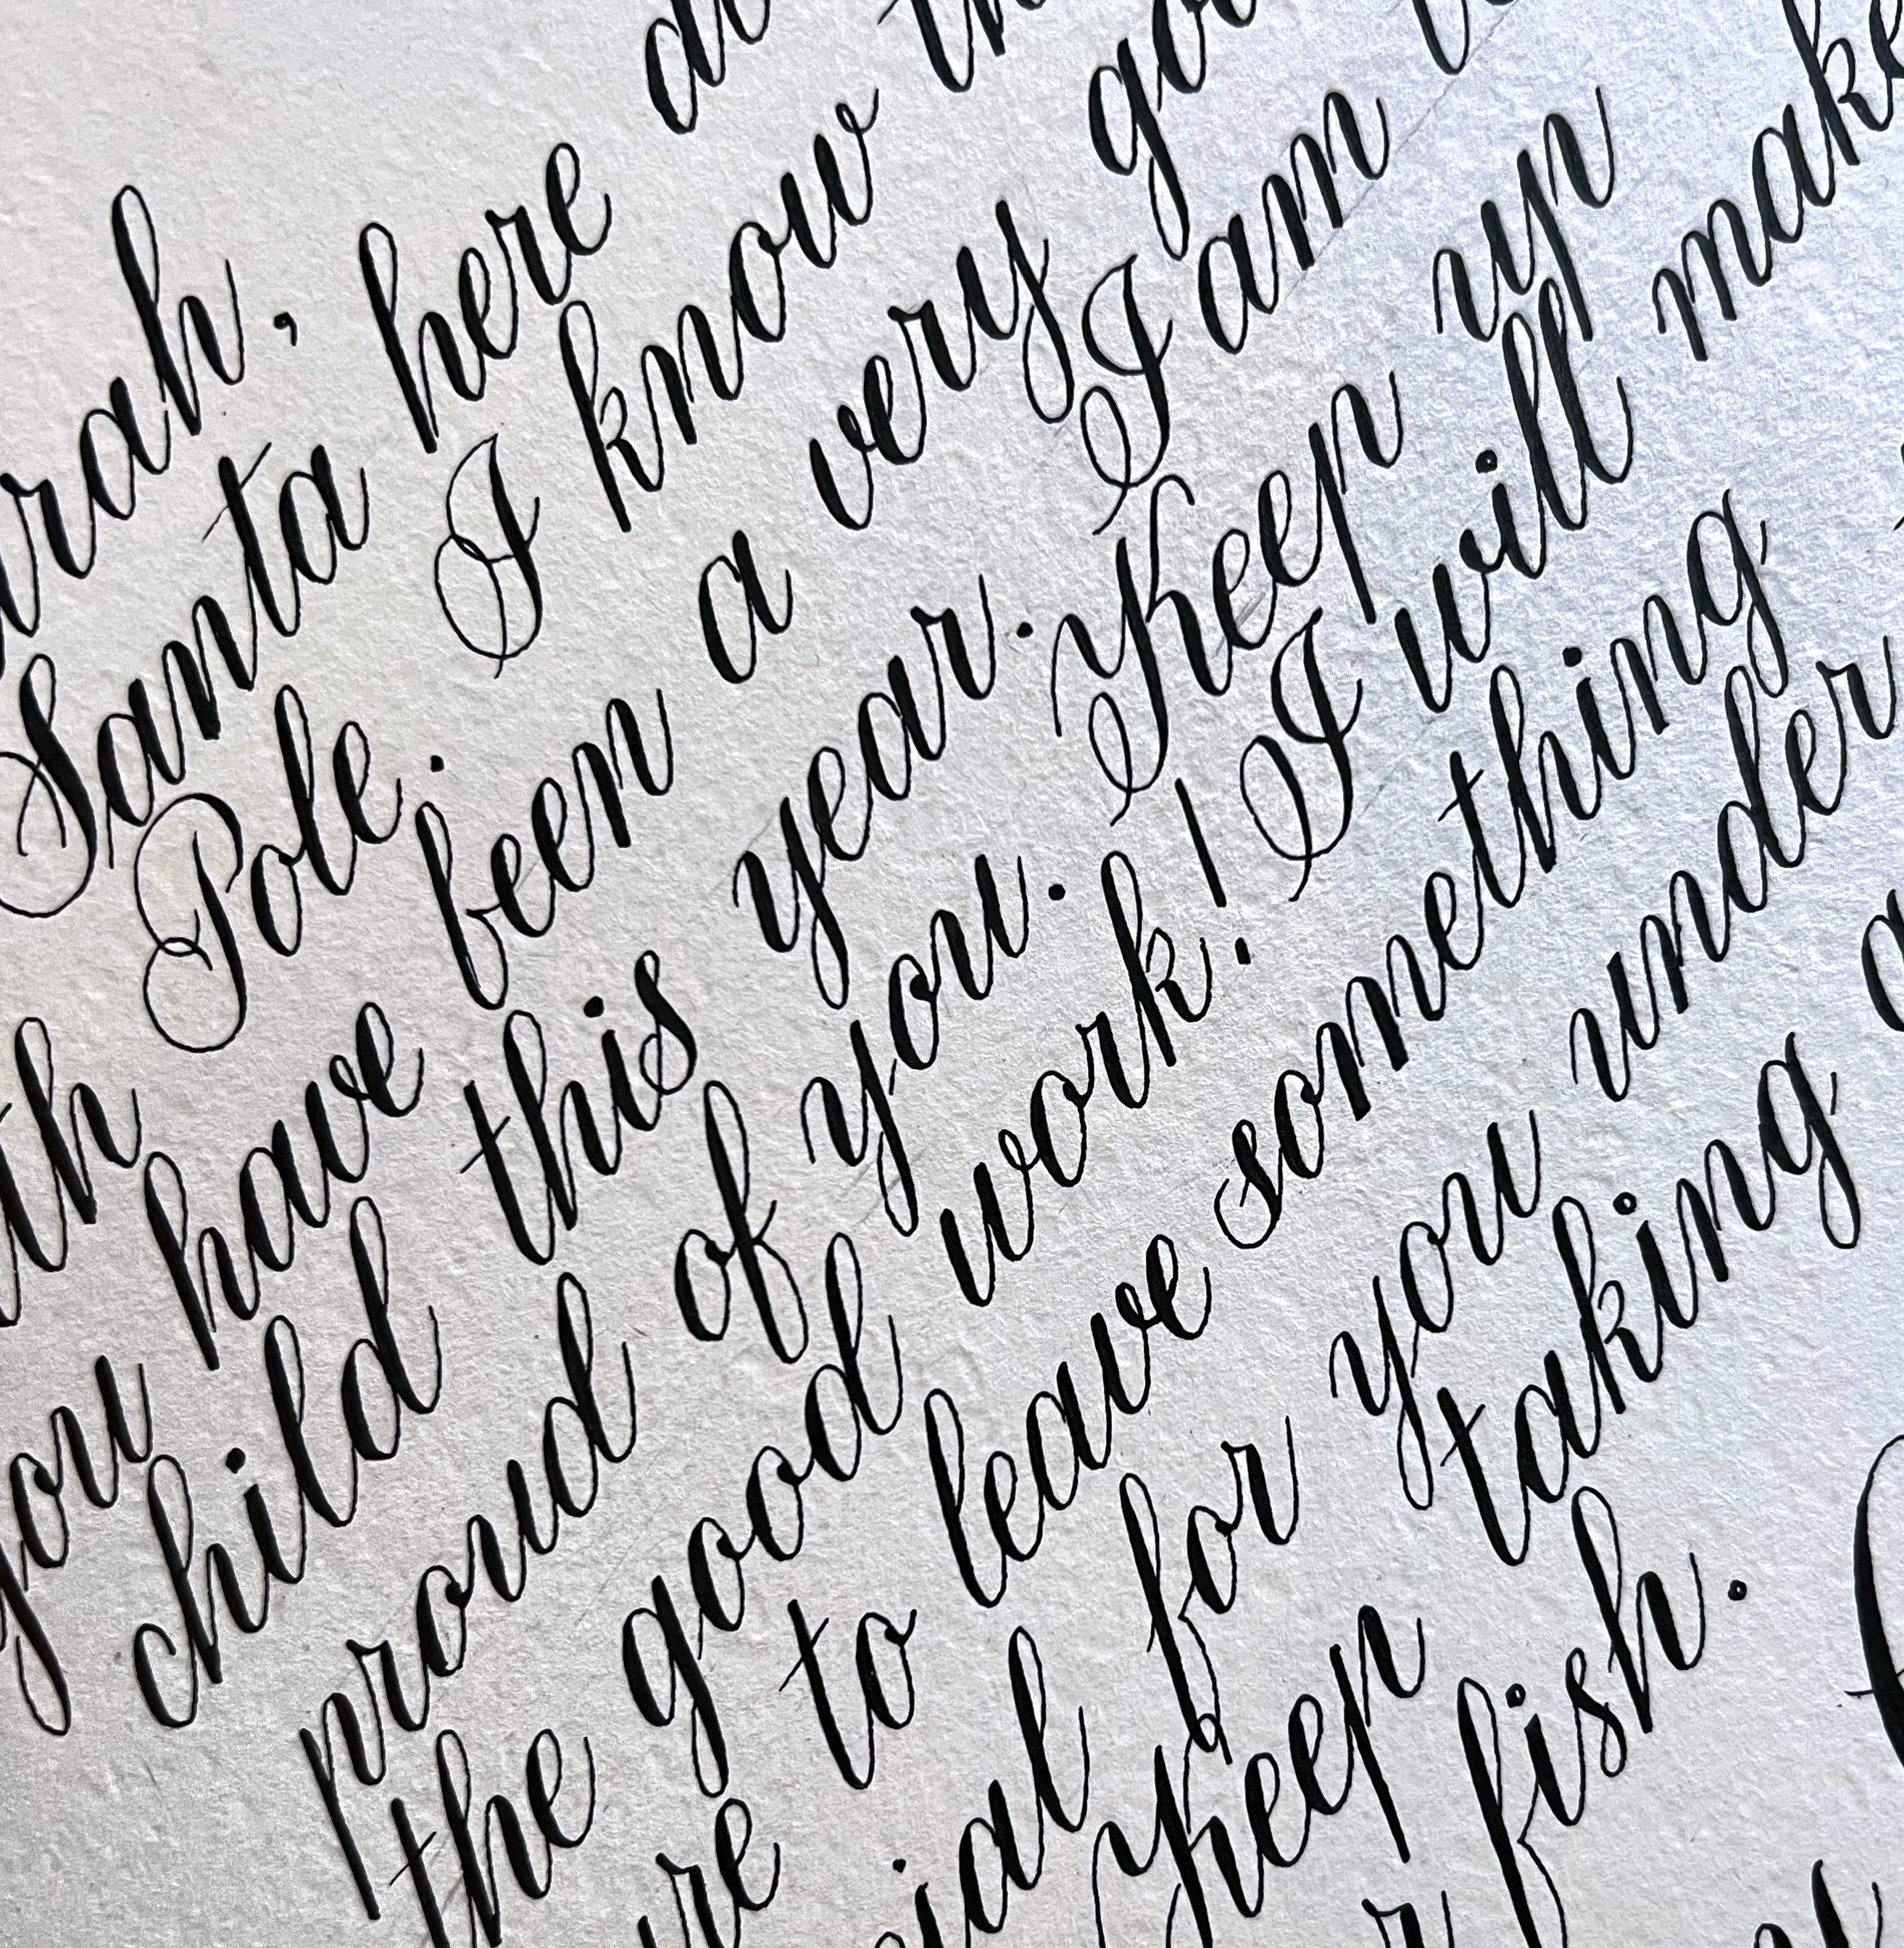 rah,
Santa here
th Pole. I know th
you have been a very go
child this year. I am
proud of you. Keep up
the good work! I will make
re to leave something
ial for you under
Keep taking
r fish.